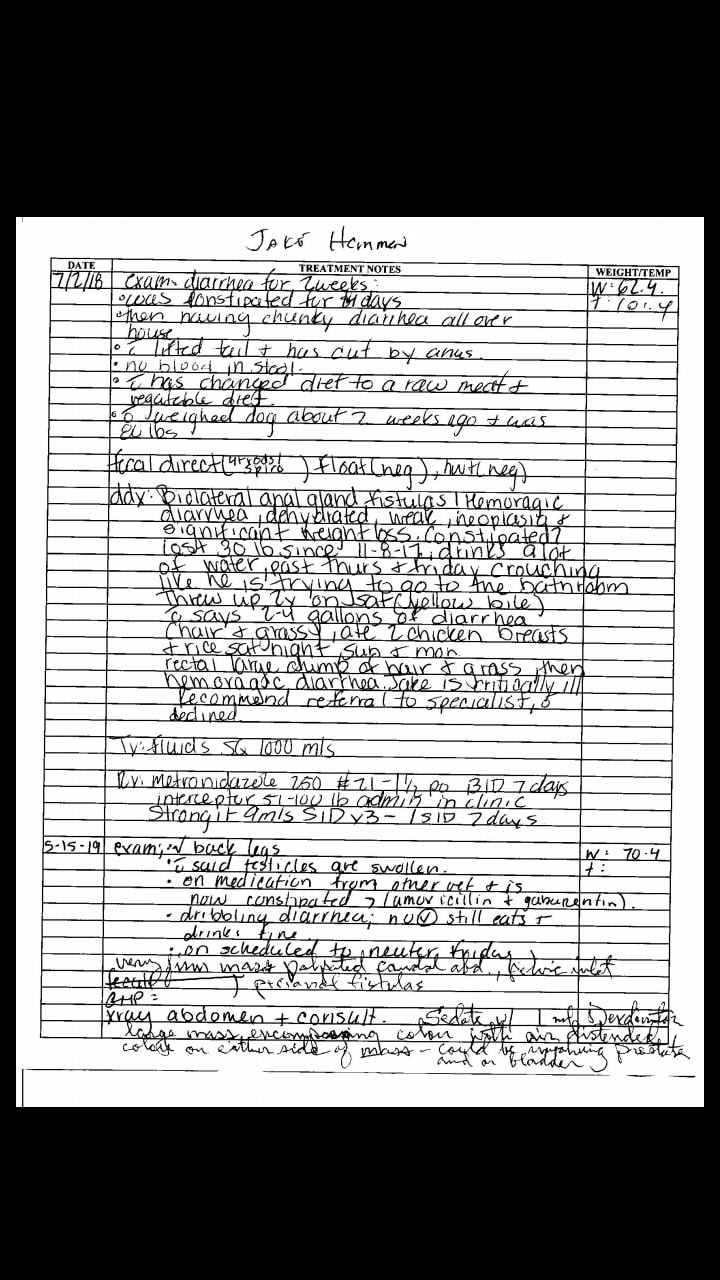 JAKE Hemmen
DATE TREATMENT NOTES WEIGHT/TEMP
7/2/18 exam- diarrhea for 2 weeks: W: 62.4
• was constipated for days T: 101.4
• then having chunky diarrhea all over
house
• lifted tail + has cut by anus.
• no blood in stool.
• has changed diet to a raw meat +
vegatable diet.
• O weighed dog about 2 weeks ago + was
lbs
fecal direct (4+ rods/ spiro) float (neg), hwt (neg)
ddx: Biolateral anal gland fistulas / Hemoragic
diarrhea, dehydrated, weak, neoplasia &
significant weight loss. Constipated?
lost 30 lb since 11-8-17, drinks a lot
of water, past thurs & friday crouching
like he is trying to go to the bathroom
threw up 2x on sat (yellow bile)
says 2-4 gallons of diarrhea
(hair & grass), ate 2 chicken breasts
+ rice sat night, sun & mon.
rectal large clump of hair & grass, then
hemoragic diarrhea. Jake is critically ill
recommend referral to specialist, O
declined.
Tx: fluids SQ 1000 mls
Rx: metronidazole 250 #21 - 1½ po BID 7 days
interceptor 51-100 lb admin in clinic
Strongid 9mls SID x3 - 1 SID 7 days
5-15-19 exam; back legs W: 70.4
• said testicles are swollen. t:
• on medication from other vet + is
now constipated (amoxicillin + gabapentin).
• dribbling diarrhea; no V still eats +
drinks fine
• on scheduled to neuter friday
very firm mass palpated caudal abd., pelvic inlet
perianal fistulas
xray abdomen + consult. Sedate w/ 1 ml
large mass encompassing colon with air distended
colon on either side of mass - could be involving prostate
and or bladder